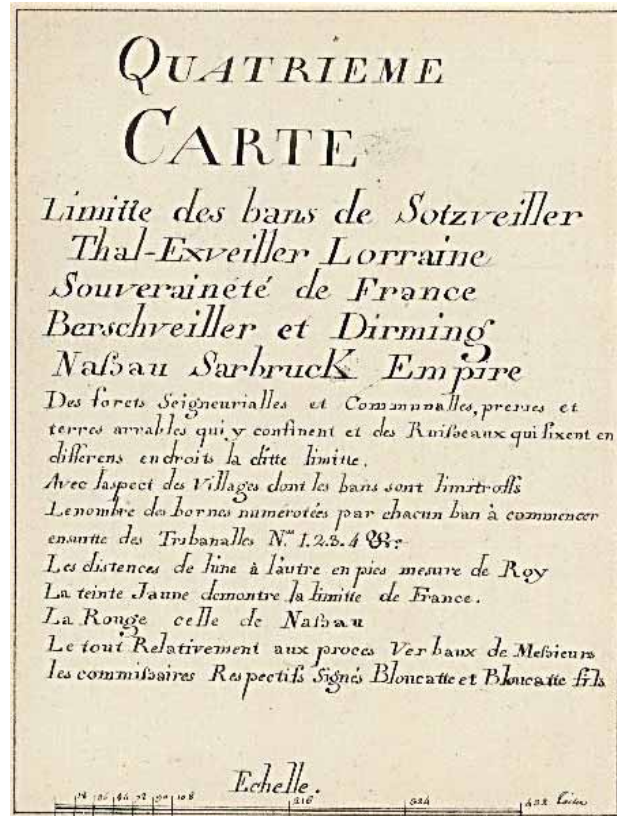 QUATRIEME
CARTE
Limitte des bans de Sotzveiller
Thal-Exveiller Lorraine
Souveraineté de France
Berschveiller et Dirming
Naßau Sarbruck Empire
Des forets Seigneurialles et Communalles, preries et
terres arrables qui y confinent et des Ruißeaux qui fixent en
differens endroits la ditte limitte.
Avec laspect des Villages dont les bans sont limitroffs
Le nombre des bornes numerotées par chacun ban à commencer
ensuitte des Tribanalles N.os 1.2.3.4 &c.
Les distences de lune à lautre en pies mesure de Roy
La teinte Jaune demontre la limitte de France.
La Rouge celle de Naßau
Le tout Relativement aux proces Verbaux de Meßieurs
les commißaires Respectifs Signés Bloucatte et Bloucatte fils
Echelle.
18 36 54 72 90 108 216 324 432 toises